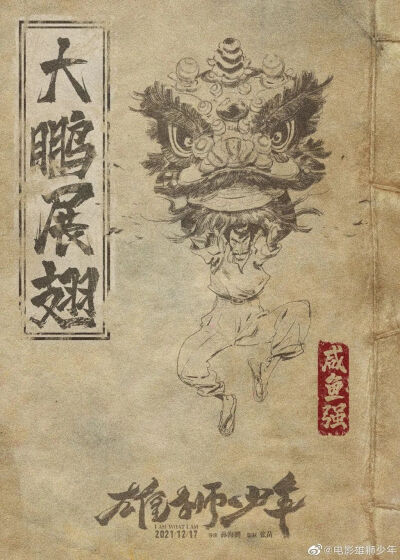 大鹏展翅
咸鱼强
雄狮少年
I AM WHAT I AM
2021 12 17
导演 孙海鹏 监制 张苗
@电影雄狮少年